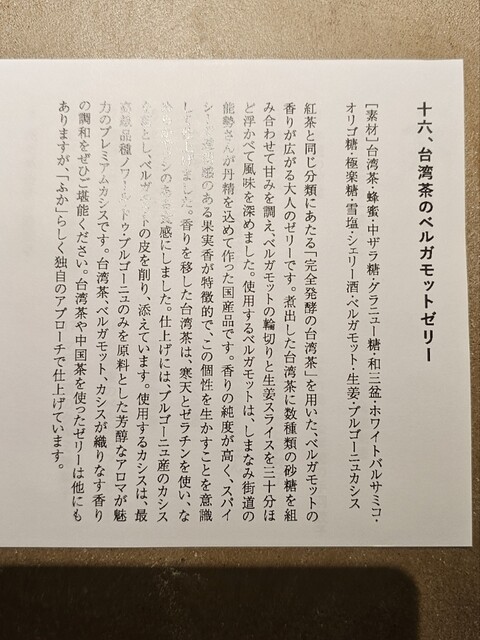 十六、台湾茶のベルガモットゼリー
［素材］台湾茶・蜂蜜・中ザラ糖・グラニュー糖・和三盆・ホワイトバルサミコ・
オリゴ糖・極楽糖・雪塩・シェリー酒・ベルガモット・生姜・ブルゴーニュカシス
紅茶と同じ分類にあたる「完全発酵の台湾茶」を用いた、ベルガモットの
香りが広がる大人のゼリーです。煮出した台湾茶に数種類の砂糖を組
み合わせて甘みを調え、ベルガモットの輪切りと生姜スライスを三十分ほ
ど浮かべて風味を深めました。使用するベルガモットは、しまなみ街道の
能勢さんが丹精を込めて作った国産品です。香りの純度が高く、スパイ
シーで清涼感のある果実香が特徴的で、この個性を生かすことを意識
しました。香りを移した台湾茶は、寒天とゼラチンを使い、な
食感にしました。仕上げには、ブルゴーニュ産のカシス
とし、ベルガモットの皮を削り、添えています。使用するカシスは、最
高級品種ノワール・ド・ブルゴーニュのみを原料とした芳醇なアロマが魅
力のプレミアムカシスです。台湾茶、ベルガモット、カシスが織りなす香り
の調和をぜひご堪能ください。台湾茶や中国茶を使ったゼリーは他にも
ありますが、「ふか」らしく独自のアプローチで仕上げています。